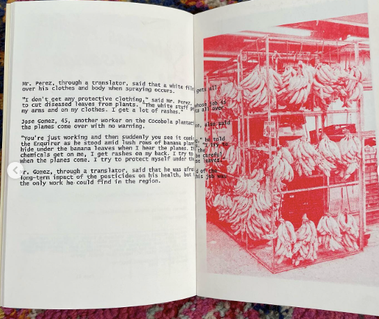 Mr. Perez, through a translator, said that a white film gets all
over his clothes and body when spraying occurs.
"I don't get any protective clothing," said Mr. Perez,
to cut diseased leaves from plants. "The white stuff
my arms and on my clothes. I get a lot of rashes."
Jose Gomez, 45, another worker on the Cocobola
the planes come over with no warning.
"You're just working and then suddenly you see it
the Enquirer as he stood amid lush rows of banana
hide under the banana leaves when I hear the planes. If the
chemicals get on me, I get rashes on my back. I try
when the planes come. I try to protect myself under the
Mr. Gomez, through a translator, said that he was afraid
long-term impact of the pesticides on his health, but
the only work he could find in the region.